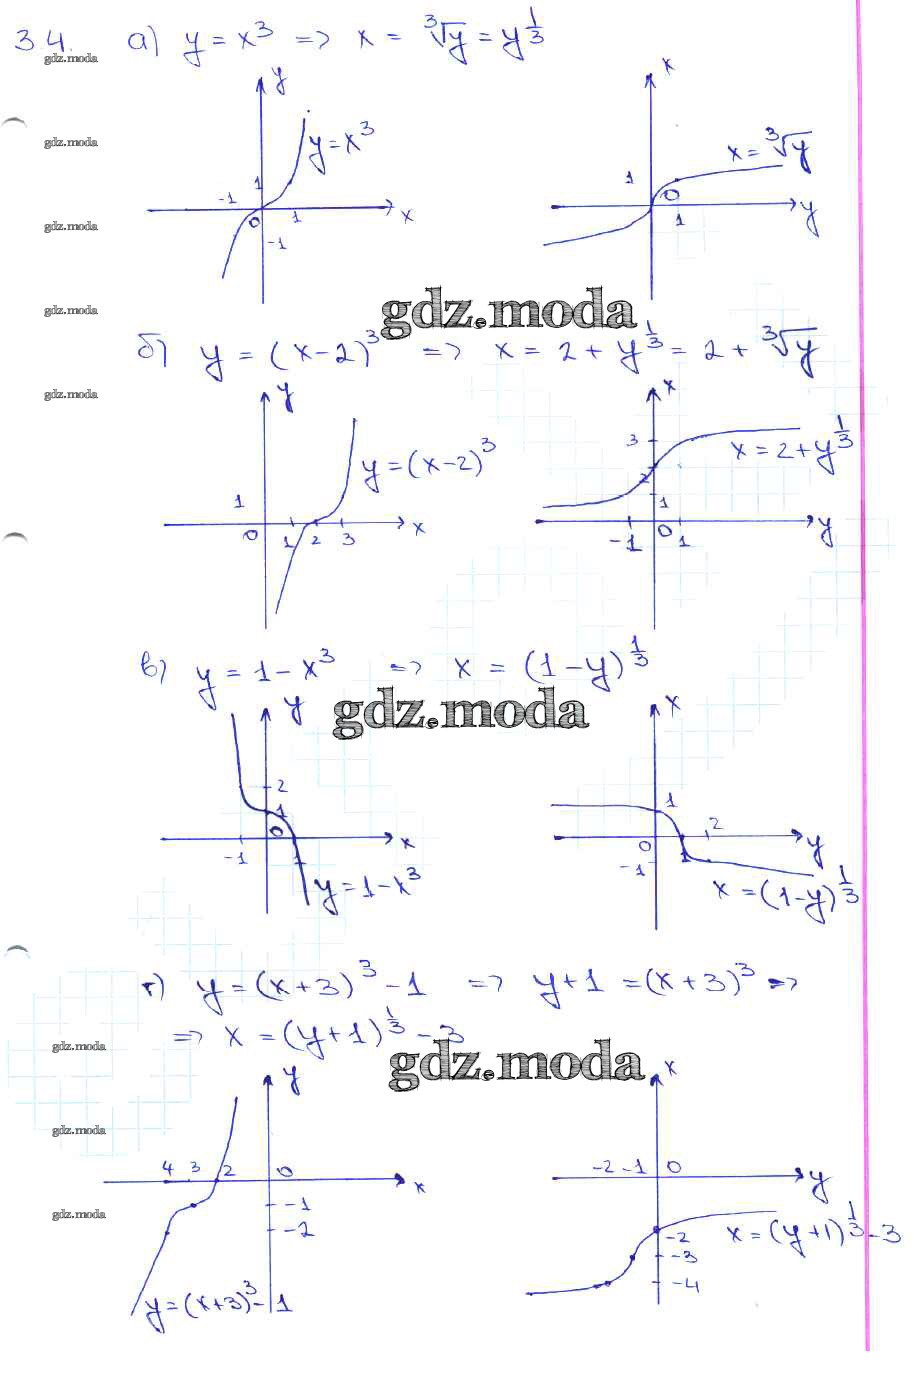 3.4. а) y = x³ => x = ∛y = y^(1/3)
gdz.moda
y
x
gdz.moda
y = x³
x = ∛y
1
-1
1
1
0
x
0
1
y
gdz.moda
-1
gdz.moda
gdz.moda
б) y = (x-2)³ => x = 2 + y^(1/3) = 2 + ∛y
gdz.moda
y
x
y = (x-2)³
3
x = 2 + y^(1/3)
2
1
1
0
1
2
3
x
-1
0
1
y
в) y = 1 - x³ => x = (1-y)^(1/3)
gdz.moda
y
x
2
1
1
0
2
-1
1
x
0
1
y
-1
y = 1 - x³
x = (1-y)^(1/3)
г) y = (x+3)³ - 1 => y+1 = (x+3)³ =>
=> x = (y+1)^(1/3) - 3
gdz.moda
gdz.moda
y
x
gdz.moda
4
3
2
0
x
-2
-1
0
y
gdz.moda
-1
-2
-2
x = (y+1)^(1/3) - 3
-3
-4
y = (x+3)³ - 1